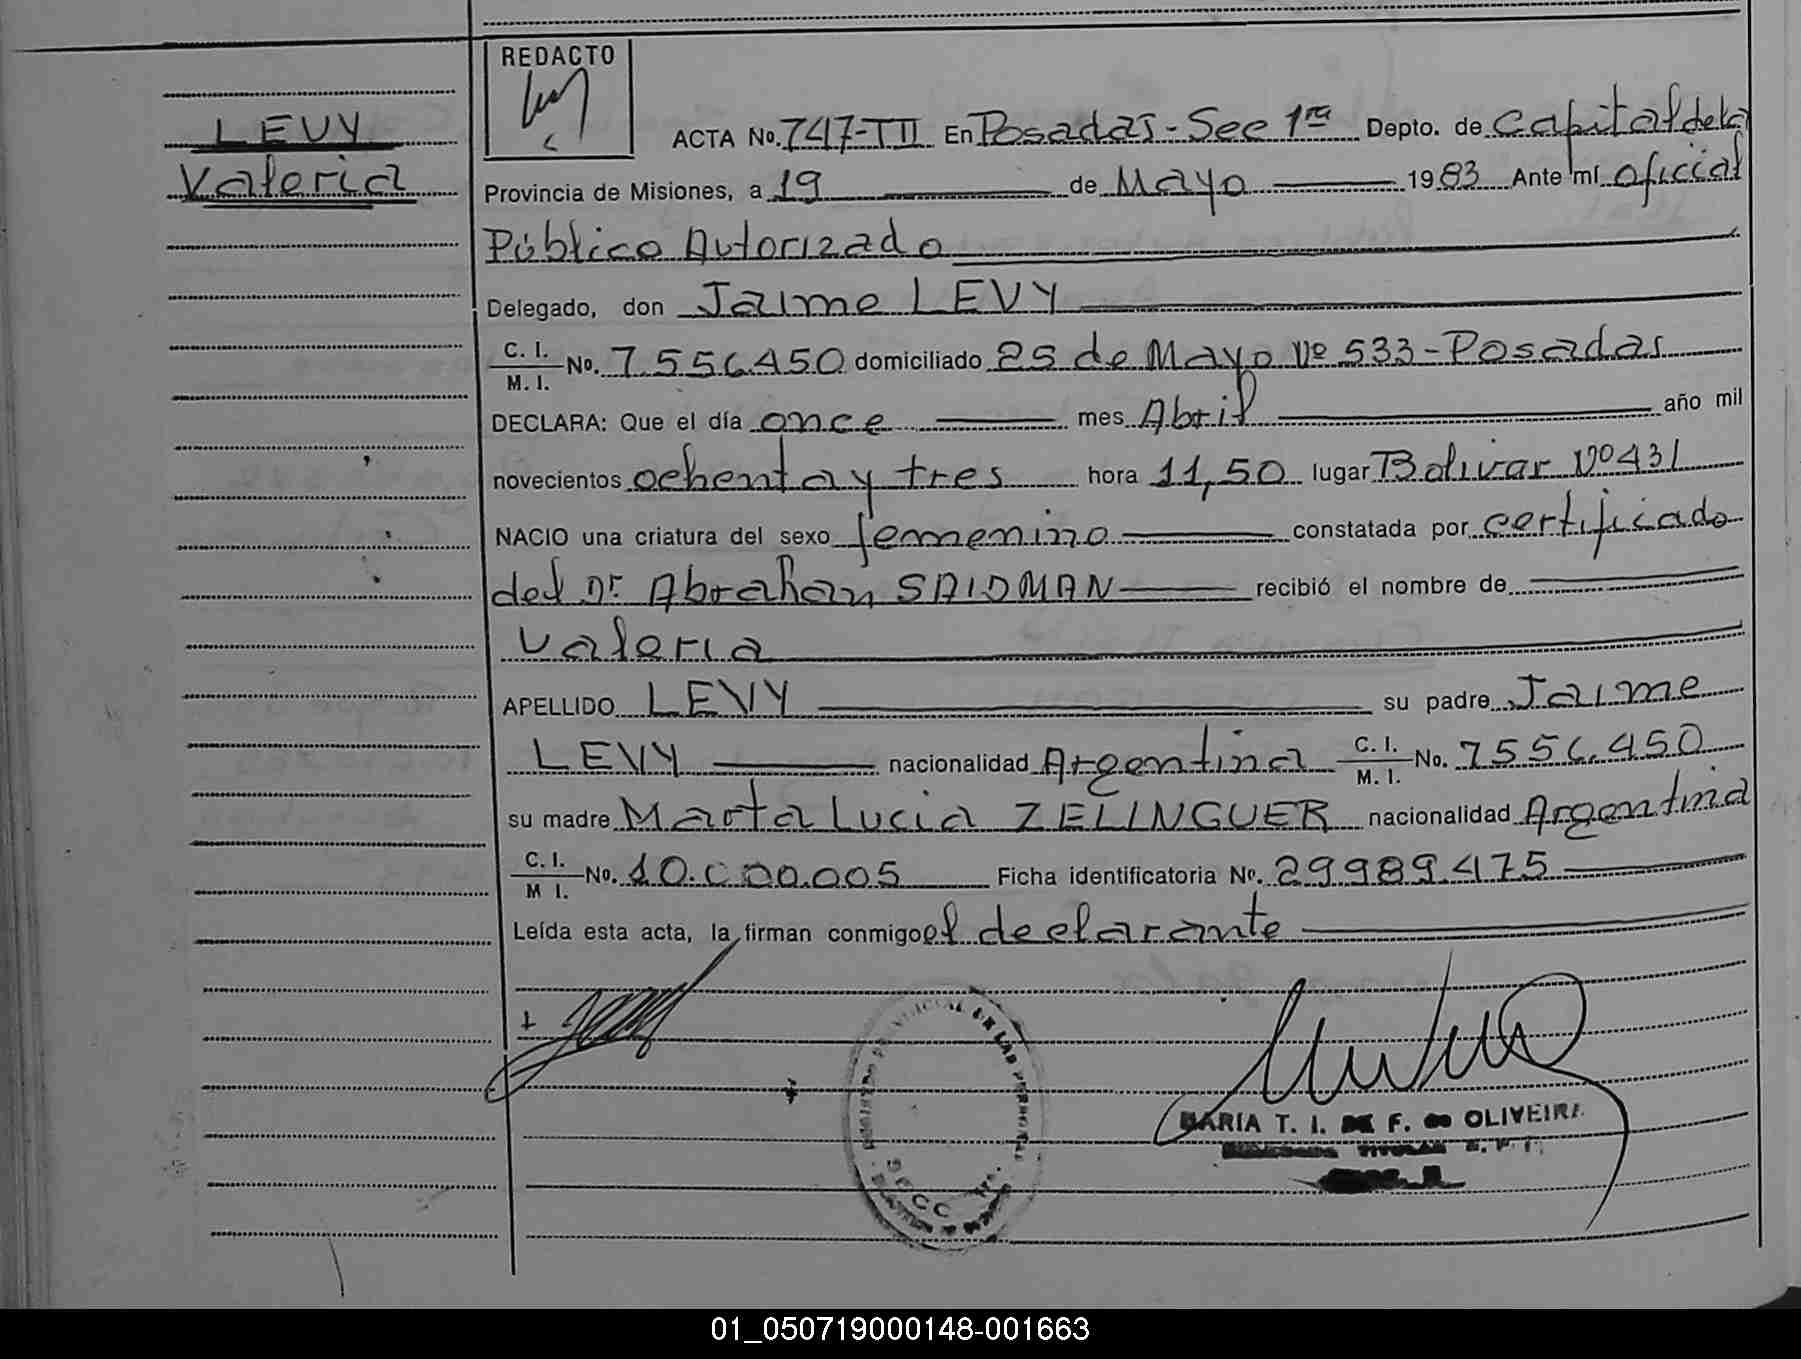 REDACTO
LEVY
Valeria
ACTA No. 747-TII En Posadas - Sec 1ra Depto. de Capital de la
Provincia de Misiones, a 19 de Mayo 1983 Ante mí oficial
Público Autorizado
Delegado, don Jaime LEVY
C. I. / M. I. No. 7.556.450 domiciliado 25 de Mayo Nº 533 - Posadas
DECLARA: Que el día once mes Abril año mil
novecientos ochenta y tres hora 11,50 lugar Bolivar Nº 431
NACIO una criatura del sexo femenino constatada por certificado
del Dr. Abraham SAIDMAN recibió el nombre de
Valeria
APELLIDO LEVY su padre Jaime
LEVY nacionalidad Argentina C. I. / M. I. No. 7556.450
su madre Marta Lucia ZELINGUER nacionalidad Argentina
C. I. / M I. No. 10.000.005 Ficha identificatoria No. 29989475
Leída esta acta, la firman conmigo el declarante
MARIA T. I. DE F. DE OLIVEIRA
01_050719000148-001663